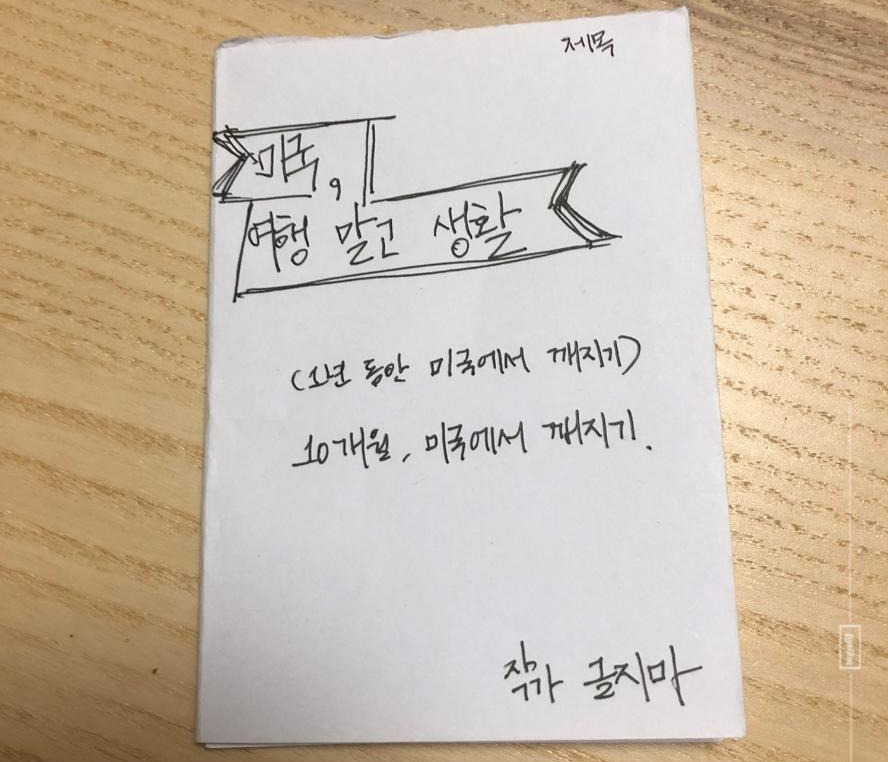 제목
미국,
여행 말고 생활
(1년 동안 미국에서 깨지기)
10개월, 미국에서 깨지기.
작가 글지마